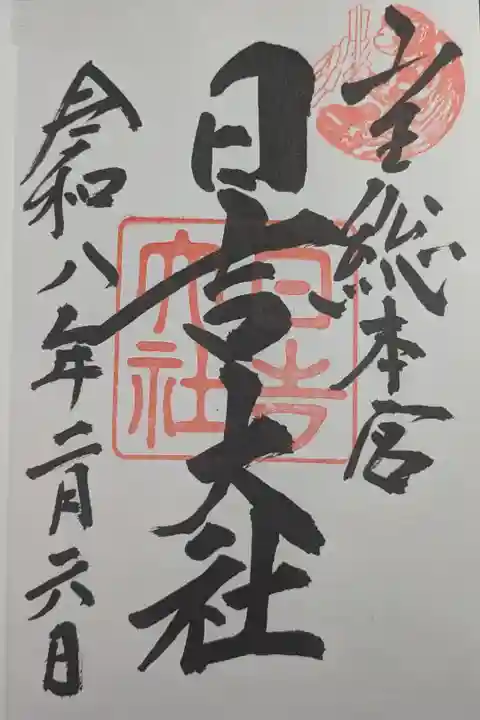 山王総本宮
日吉大社
日吉
大社
令和八年二月六日